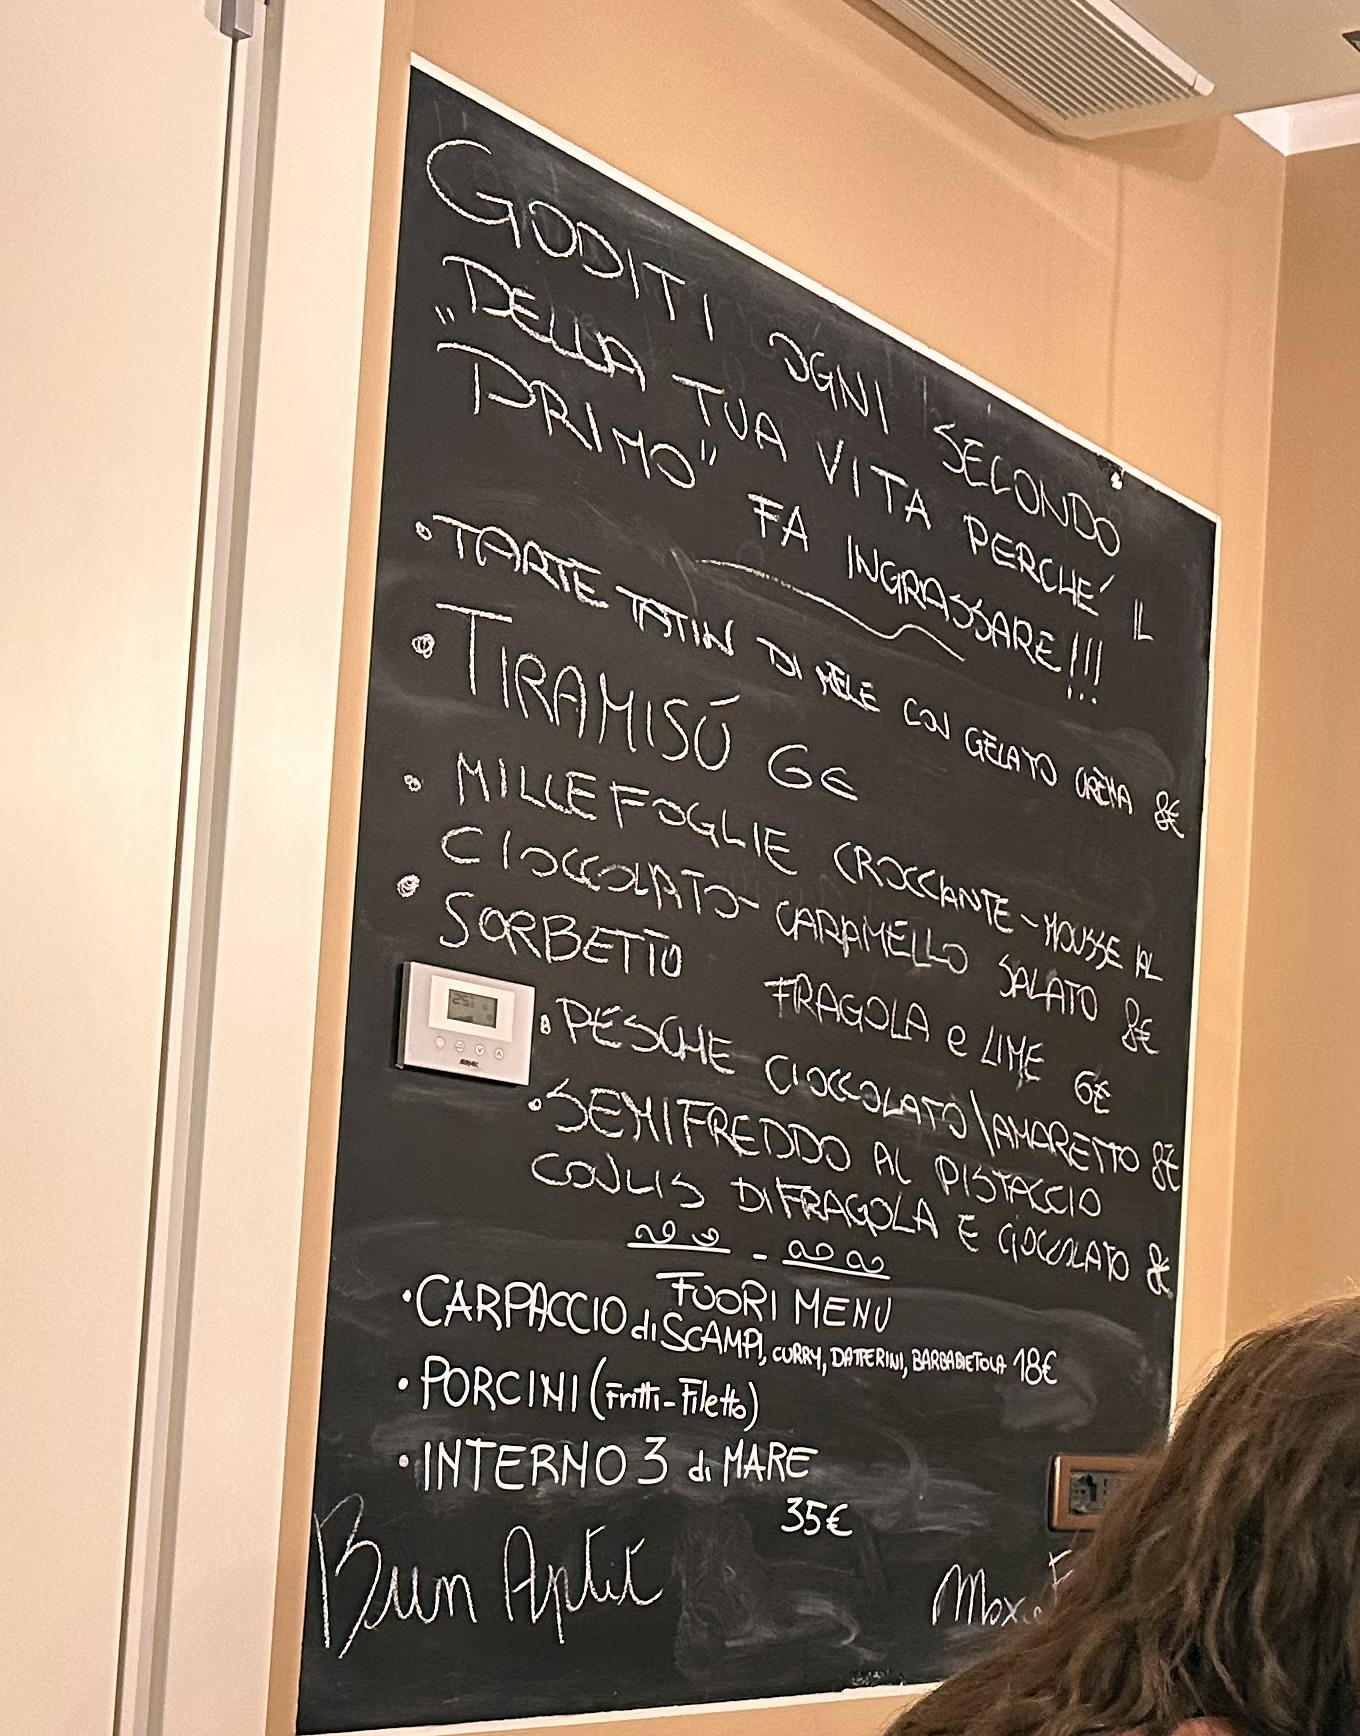 GODITI OGNI SECONDO
DELLA TUA VITA PERCHÉ IL
"PRIMO" FA INGRASSARE!!!
• TARTE TATIN DI MELE CON GELATO CREMA 8€
• TIRAMISÚ 6€
• MILLEFOGLIE CROCCANTE - MOUSSE AL
CIOCCOLATO - CARAMELLO SALATO 8€
• SORBETTO FRAGOLA e LIME 6€
• PESCHE CIOCCOLATO\AMARETTO 8€
• SEMIFREDDO AL PISTACCIO
COULIS DI FRAGOLA E CIOCCOLATO 8€
FUORI MENU
• CARPACCIO di SCAMPI, CURRY, DATTERINI, BARBABIETOLA 18€
• PORCINI (Fritti-Filetto)
• INTERNO 3 di MARE
35€
Bun Aptit